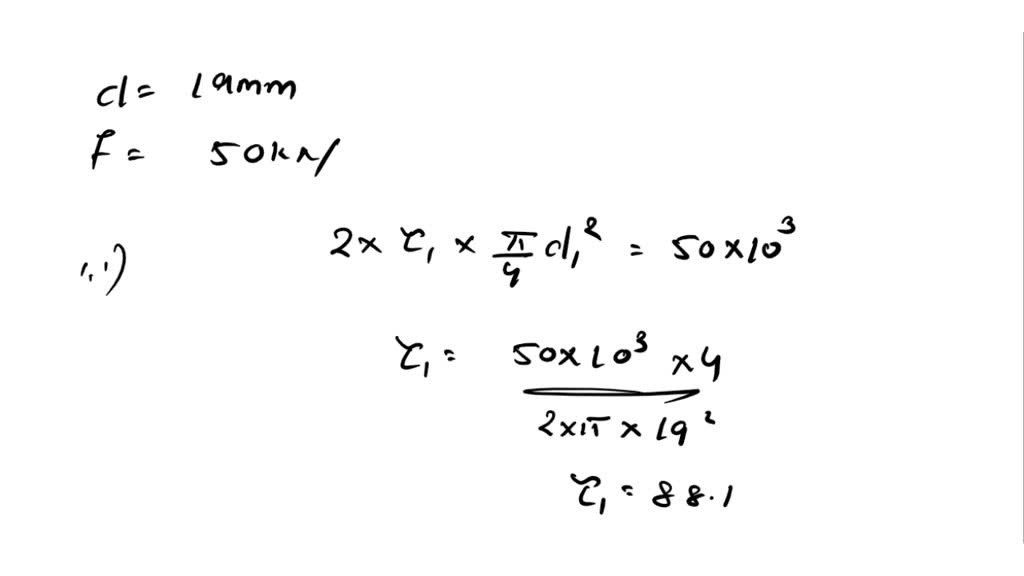 d = 19mm
F = 50kN
i,i)
2 × τ₁ × π/4 d₁² = 50×10³
τ₁ = 50×10³ ×4 / 2×π × 19²
τ₁ = 88.1